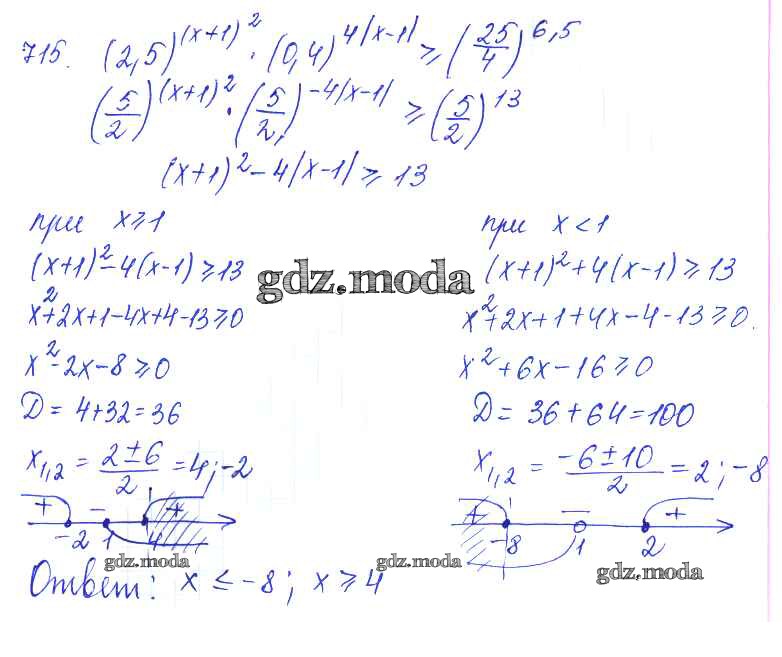 715. (2,5)^(x+1)^2 · (0,4)^4|x-1| ⩾ (25/4)^6,5
(5/2)^(x+1)^2 · (5/2)^-4|x-1| ⩾ (5/2)^13
(x+1)^2 - 4|x-1| ⩾ 13
при x⩾1
(x+1)^2 - 4(x-1) ⩾ 13
x^2+2x+1-4x+4-13⩾0
x^2-2x-8⩾0
D = 4+32=36
x1,2 = (2±6)/2 = 4; -2
+ - +
-2 1 4
при x<1
(x+1)^2+4(x-1)⩾13
x^2+2x+1+4x-4-13⩾0.
x^2+6x-16⩾0
D = 36+64=100
x1,2 = (-6±10)/2 = 2; -8
+ - +
-8 1 2
gdz.moda
gdz.moda
gdz.moda
gdz.moda
Ответ: x ≤ -8; x ⩾ 4